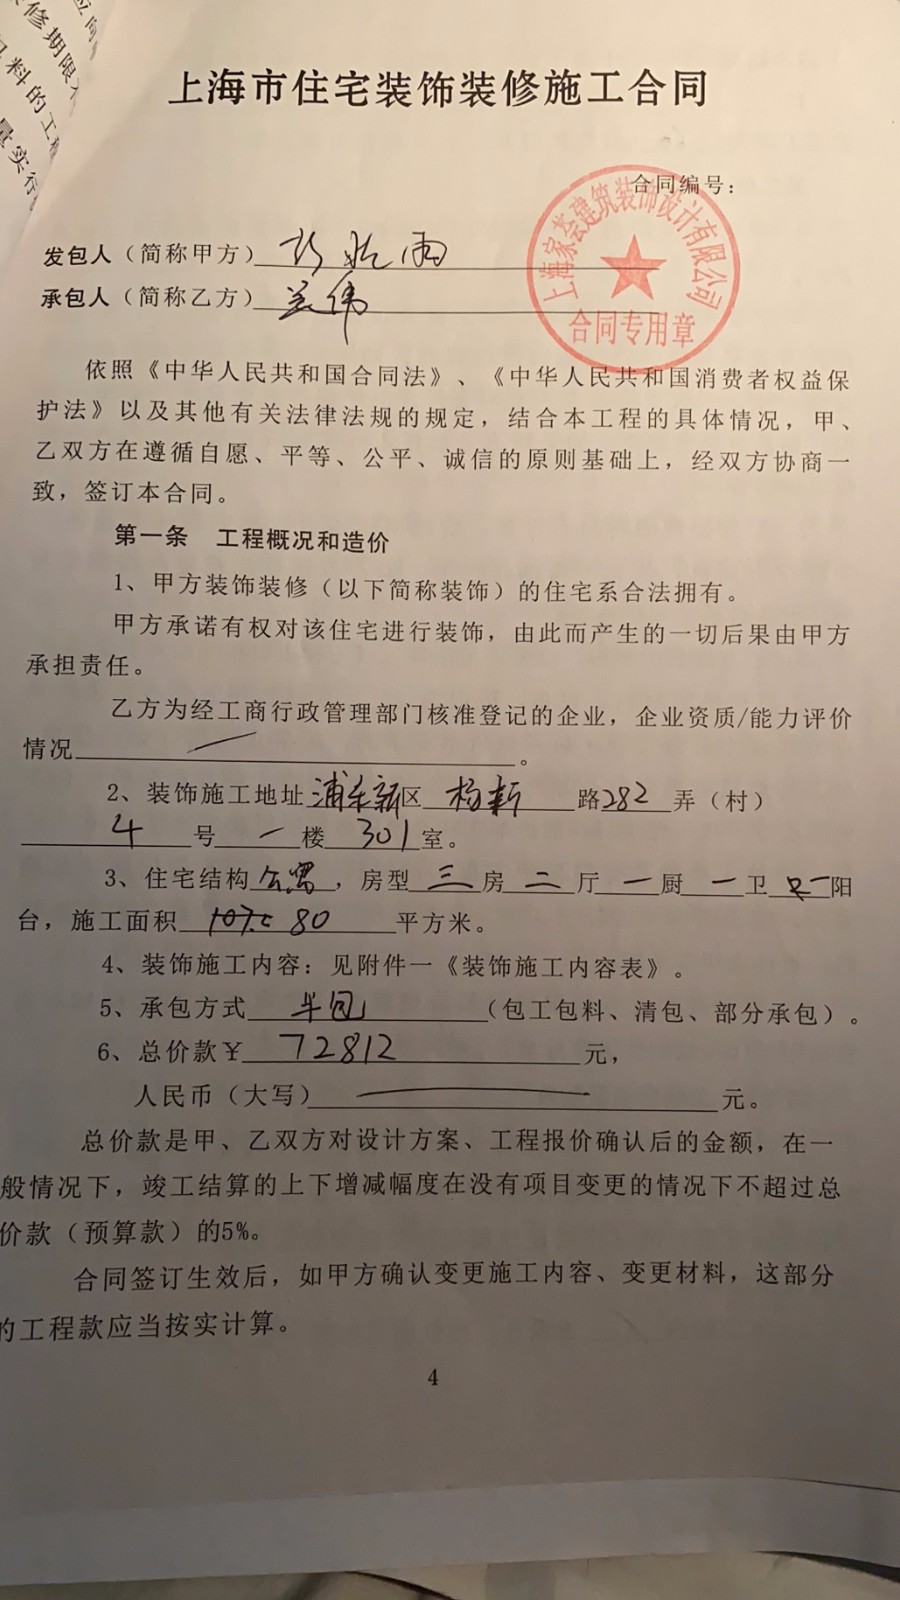 应向
修期限
料的工程
量实行
上海市住宅装饰装修施工合同
合同编号：
上海家荟建筑装饰设计有限公司
合同专用章
发包人（简称甲方）雨
承包人（简称乙方）伟
依照《中华人民共和国合同法》、《中华人民共和国消费者权益保
护法》以及其他有关法律法规的规定，结合本工程的具体情况，甲、
乙双方在遵循自愿、平等、公平、诚信的原则基础上，经双方协商一
致，签订本合同。
第一条　工程概况和造价
1、甲方装饰装修（以下简称装饰）的住宅系合法拥有。
甲方承诺有权对该住宅进行装饰，由此而产生的一切后果由甲方
承担责任。
乙方为经工商行政管理部门核准登记的企业，企业资质/能力评价
情况 ／ 。
2、装饰施工地址浦东新区 杨新 路282弄（村）
4 号 一 楼 301室。
3、住宅结构公寓，房型三房二厅一厨一卫 一阳
台，施工面积 80 平方米。
4、装饰施工内容：见附件一《装饰施工内容表》。
5、承包方式 半包 （包工包料、清包、部分承包）。
6、总价款￥ 72812 元，
人民币（大写） — 元。
总价款是甲、乙双方对设计方案、工程报价确认后的金额，在一
般情况下，竣工结算的上下增减幅度在没有项目变更的情况下不超过总
价款（预算款）的5%。
合同签订生效后，如甲方确认变更施工内容、变更材料，这部分
的工程款应当按实计算。
4